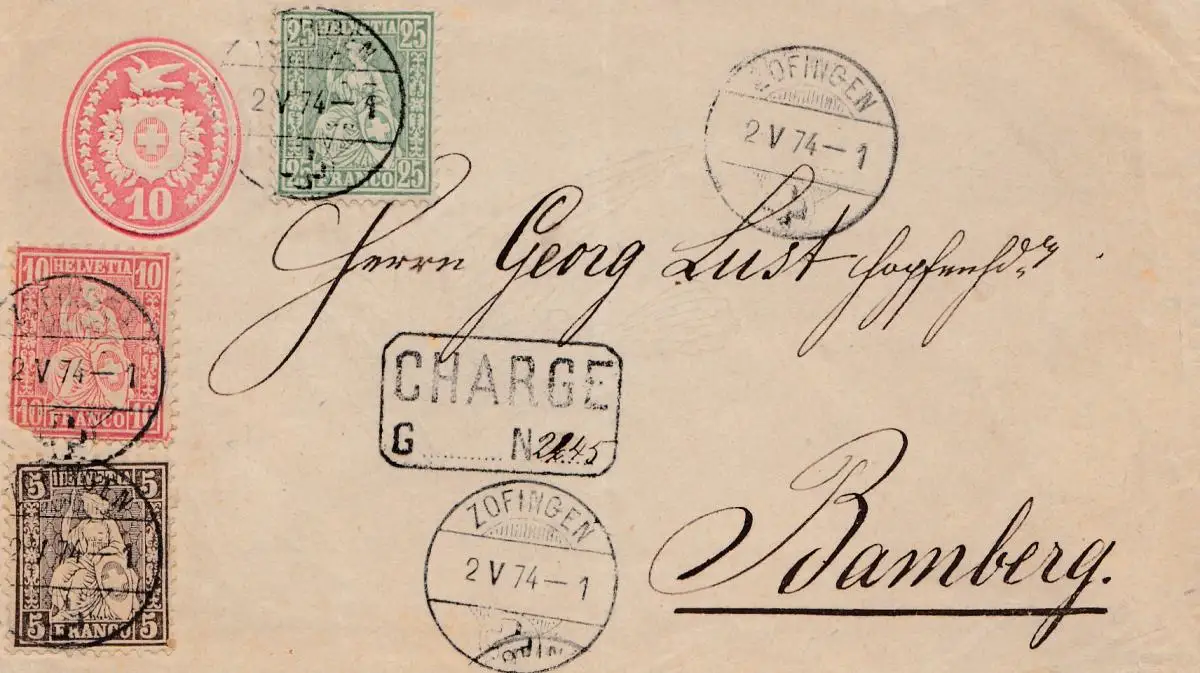 10
25 HELVETIA 25
25 FRANCO 25
2 V 74 – 1
ZOFINGEN
2 V 74 – 1
Herrn Georg Lust
10 HELVETIA 10
10 FRANCO 10
2 V 74 – 1
CHARGE
G N 2645
5 HELVETIA 5
5 FRANCO 5
V 74 – 1
ZOFINGEN
2 V 74 – 1
Bamberg.